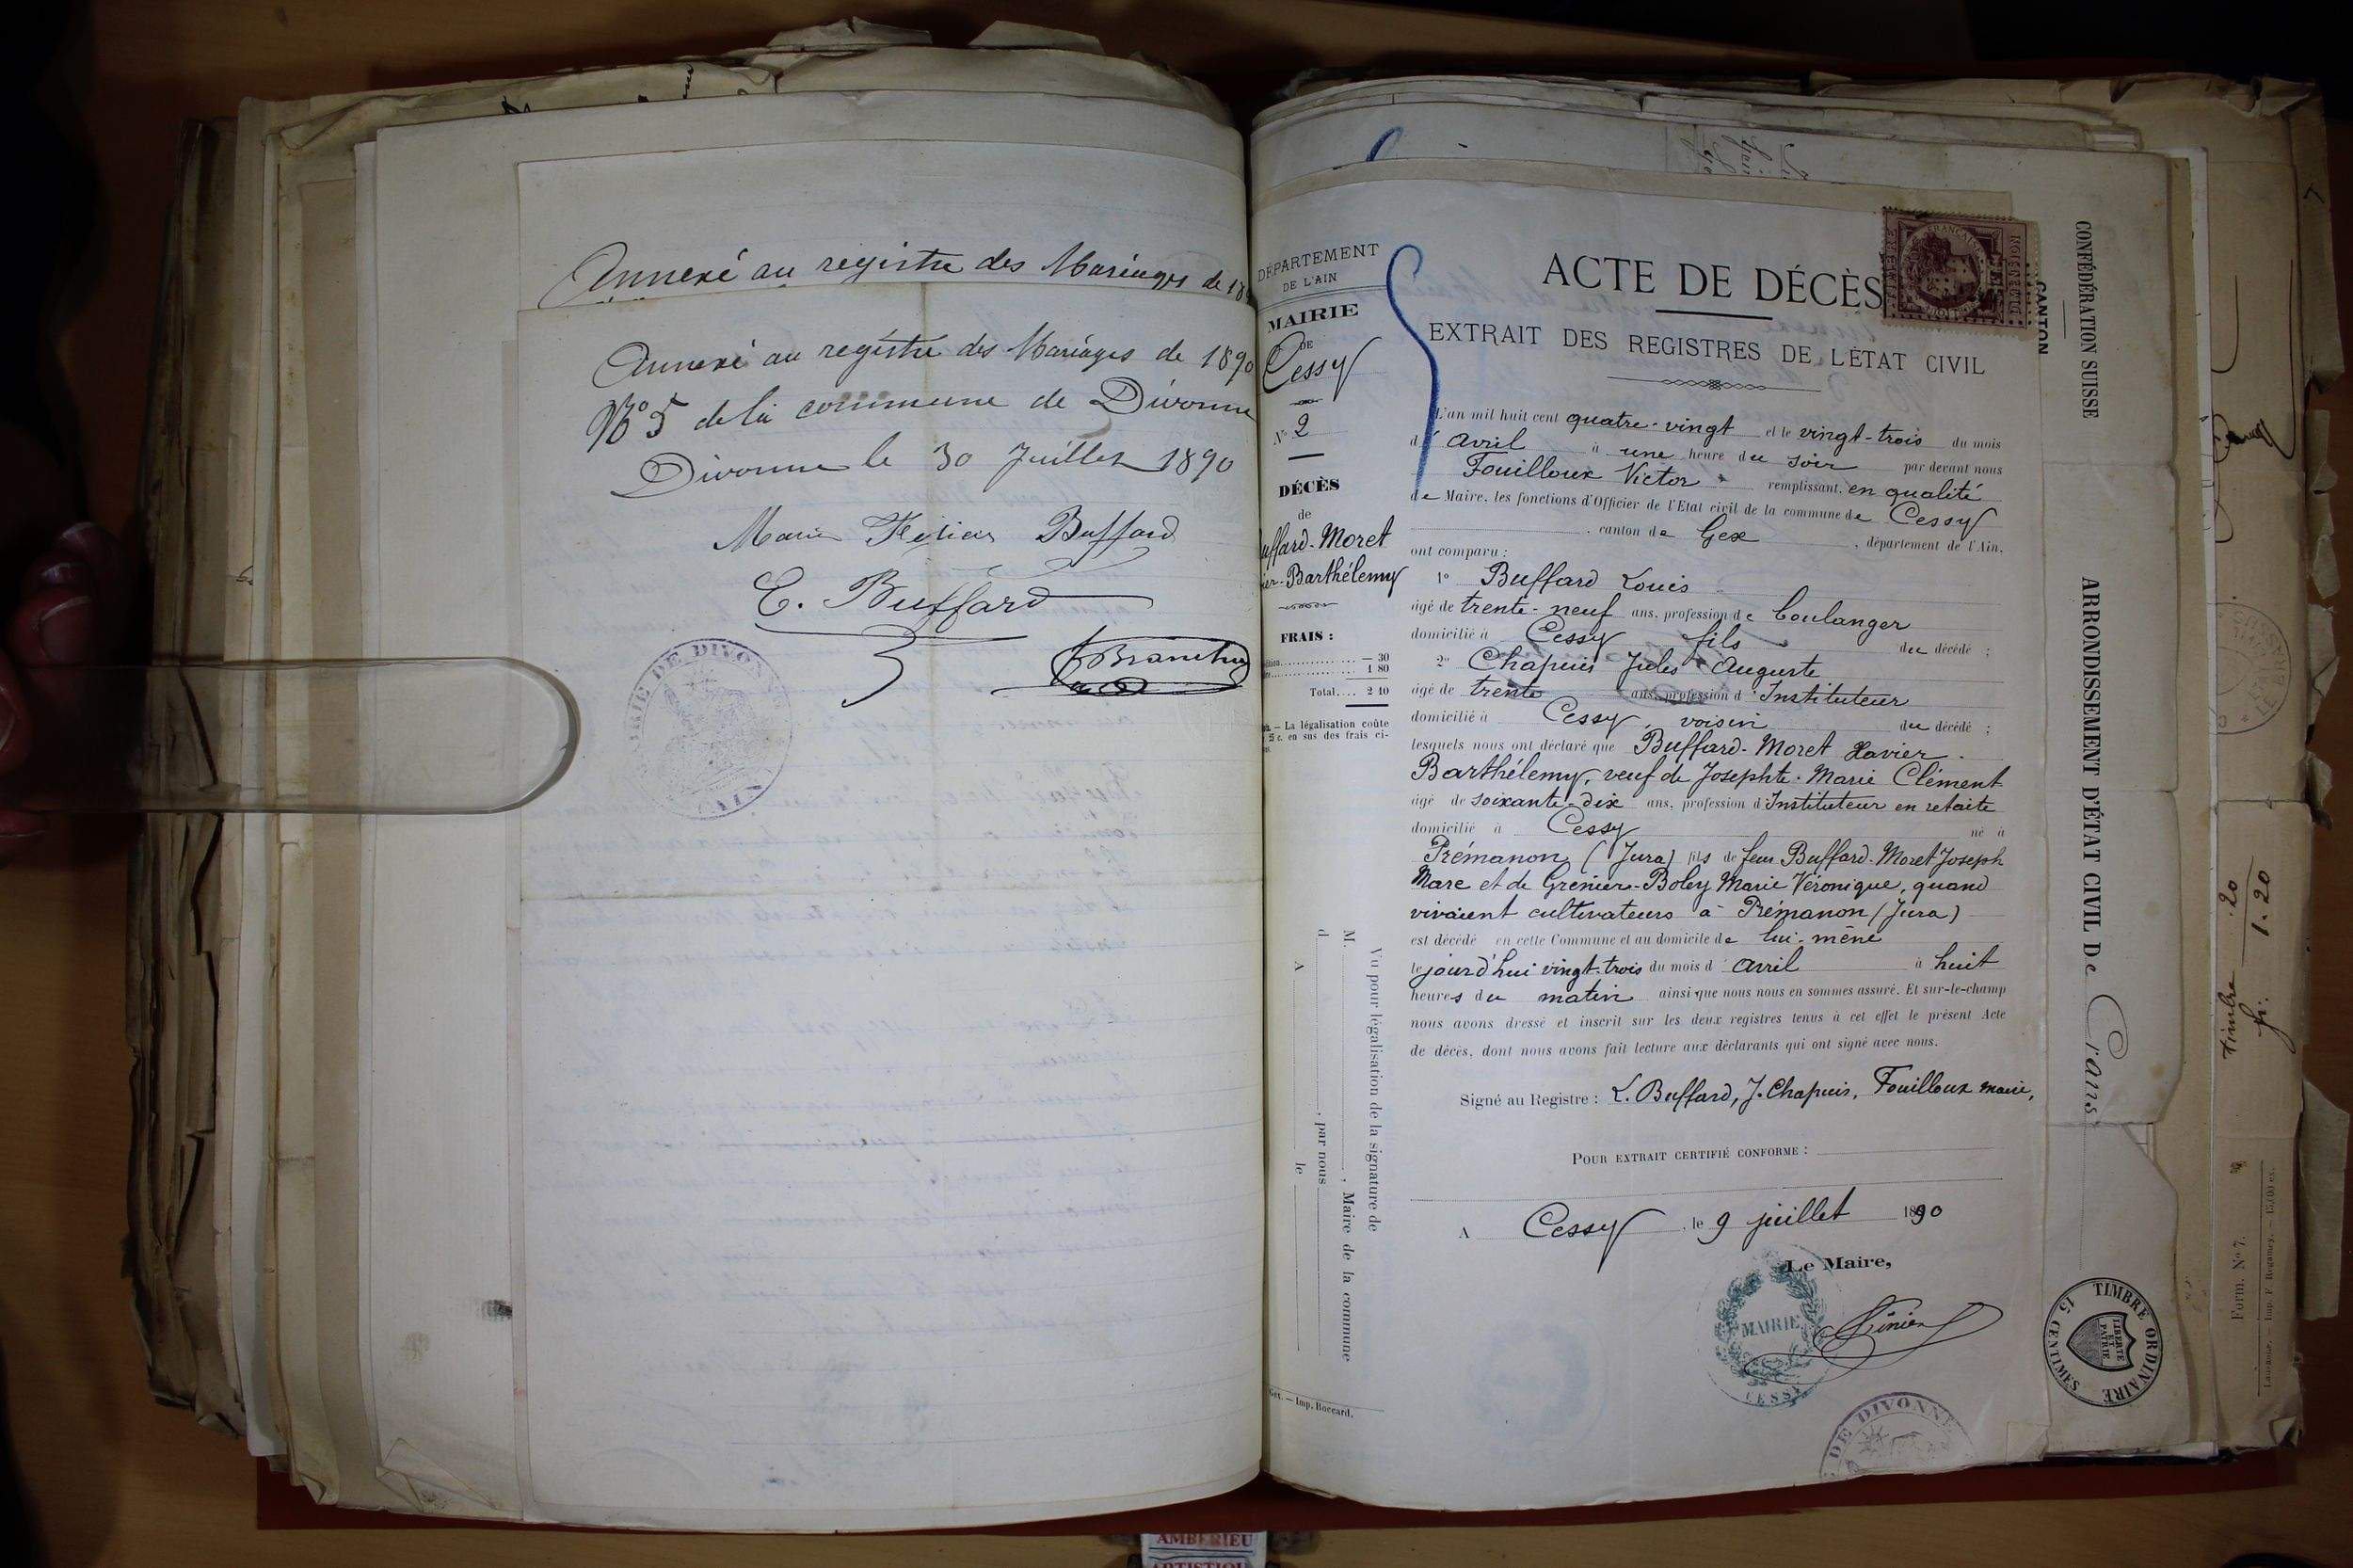 Annexé au registre des Mariages de 18
Annexé au registre des Mariages de 1890
No 5 de la commune de Divonne
Divonne le 30 Juillet 1890
Buffard
E. Buffard
MAIRIE DE DIVONNE
AIN
DÉPARTEMENT
DE L'AIN
MAIRIE
DE
Cessy
No 2
DÉCÈS
de
uffard-Moret
ier-Barthélemy
FRAIS :
30
1 80
Total.... 2 10
La légalisation coûte
25 c. en sus des frais ci-
Vu pour légalisation de la signature de
M. , Maire de la commune
d , par nous
A le
Gex. — Imp. Boccard.
ACTE DE DÉCÈS
EXTRAIT DES REGISTRES DE L'ÉTAT CIVIL
L'an mil huit cent quatre-vingt et le vingt-trois du mois
d'avril à une heure du soir par devant nous
Fouilloux Victor remplissant, en qualité
de Maire, les fonctions d'Officier de l'Etat civil de la commune de Cessy
, canton de Gex , département de l'Ain,
ont comparu :
1o Buffard Louis
âgé de trente-neuf ans, profession de boulanger
domicilié à Cessy fils du décédé ;
2o Chapuis Jules Auguste
âgé de trente ans, profession d'Instituteur
domicilié à Cessy, voisin du décédé ;
lesquels nous ont déclaré que Buffard-Moret Xavier-
Barthélemy, veuf de Josephte-Marie Clément
âgé de soixante-dix ans, profession d'Instituteur en retaite
domicilié à Cessy né à
Prémanon (Jura) fils de feu Buffard-Moret Joseph
Marc et de Grenier-Boley Marie Véronique, quand
vivaient cultivateurs à Prémanon (Jura)
est décédé en cette Commune et au domicile de lui-même
le jourd'hui vingt-trois du mois d'avril à huit
heures du matin ainsi que nous nous en sommes assuré. Et sur-le-champ
nous avons dressé et inscrit sur les deux registres tenus à cet effet le présent Acte
de décès, dont nous avons fait lecture aux déclarants qui ont signé avec nous.
Signé au Registre : L. Buffard, J. Chapuis, Fouilloux maire,
POUR EXTRAIT CERTIFIÉ CONFORME :
A Cessy, le 9 juillet 1890
Le Maire,
MAIRIE
CESSY
DE DIVONNE
CONFÉDÉRATION SUISSE
CANTON
ARRONDISSEMENT D'ÉTAT CIVIL De Crans
TIMBRE ORDINAIRE
15 CENTIMES
LIBERTÉ
ET
PATRIE
timbre .20
fr. 1.20
Form. No 7.
AMBERIEU